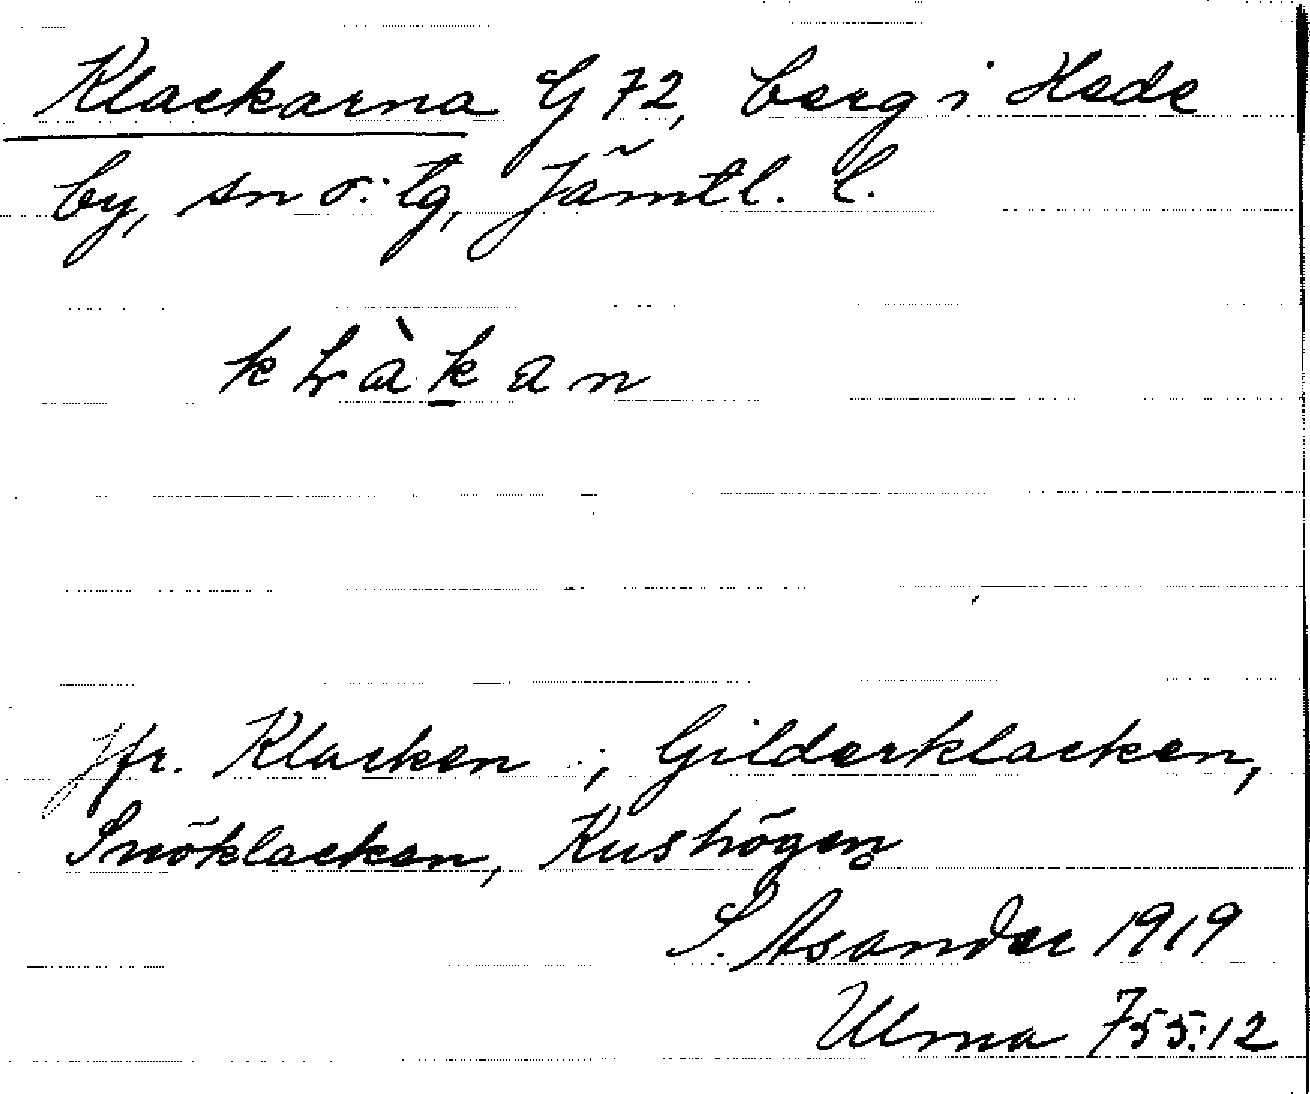 Klackarna G 72, berg i Hede
by, sn o. tg, Jämtl. l.
kλàkan
Jfr. Klacken ; Gilderklacken,
Snöklacken, Kushögen
S. Asander 1919
Ulma 755:12